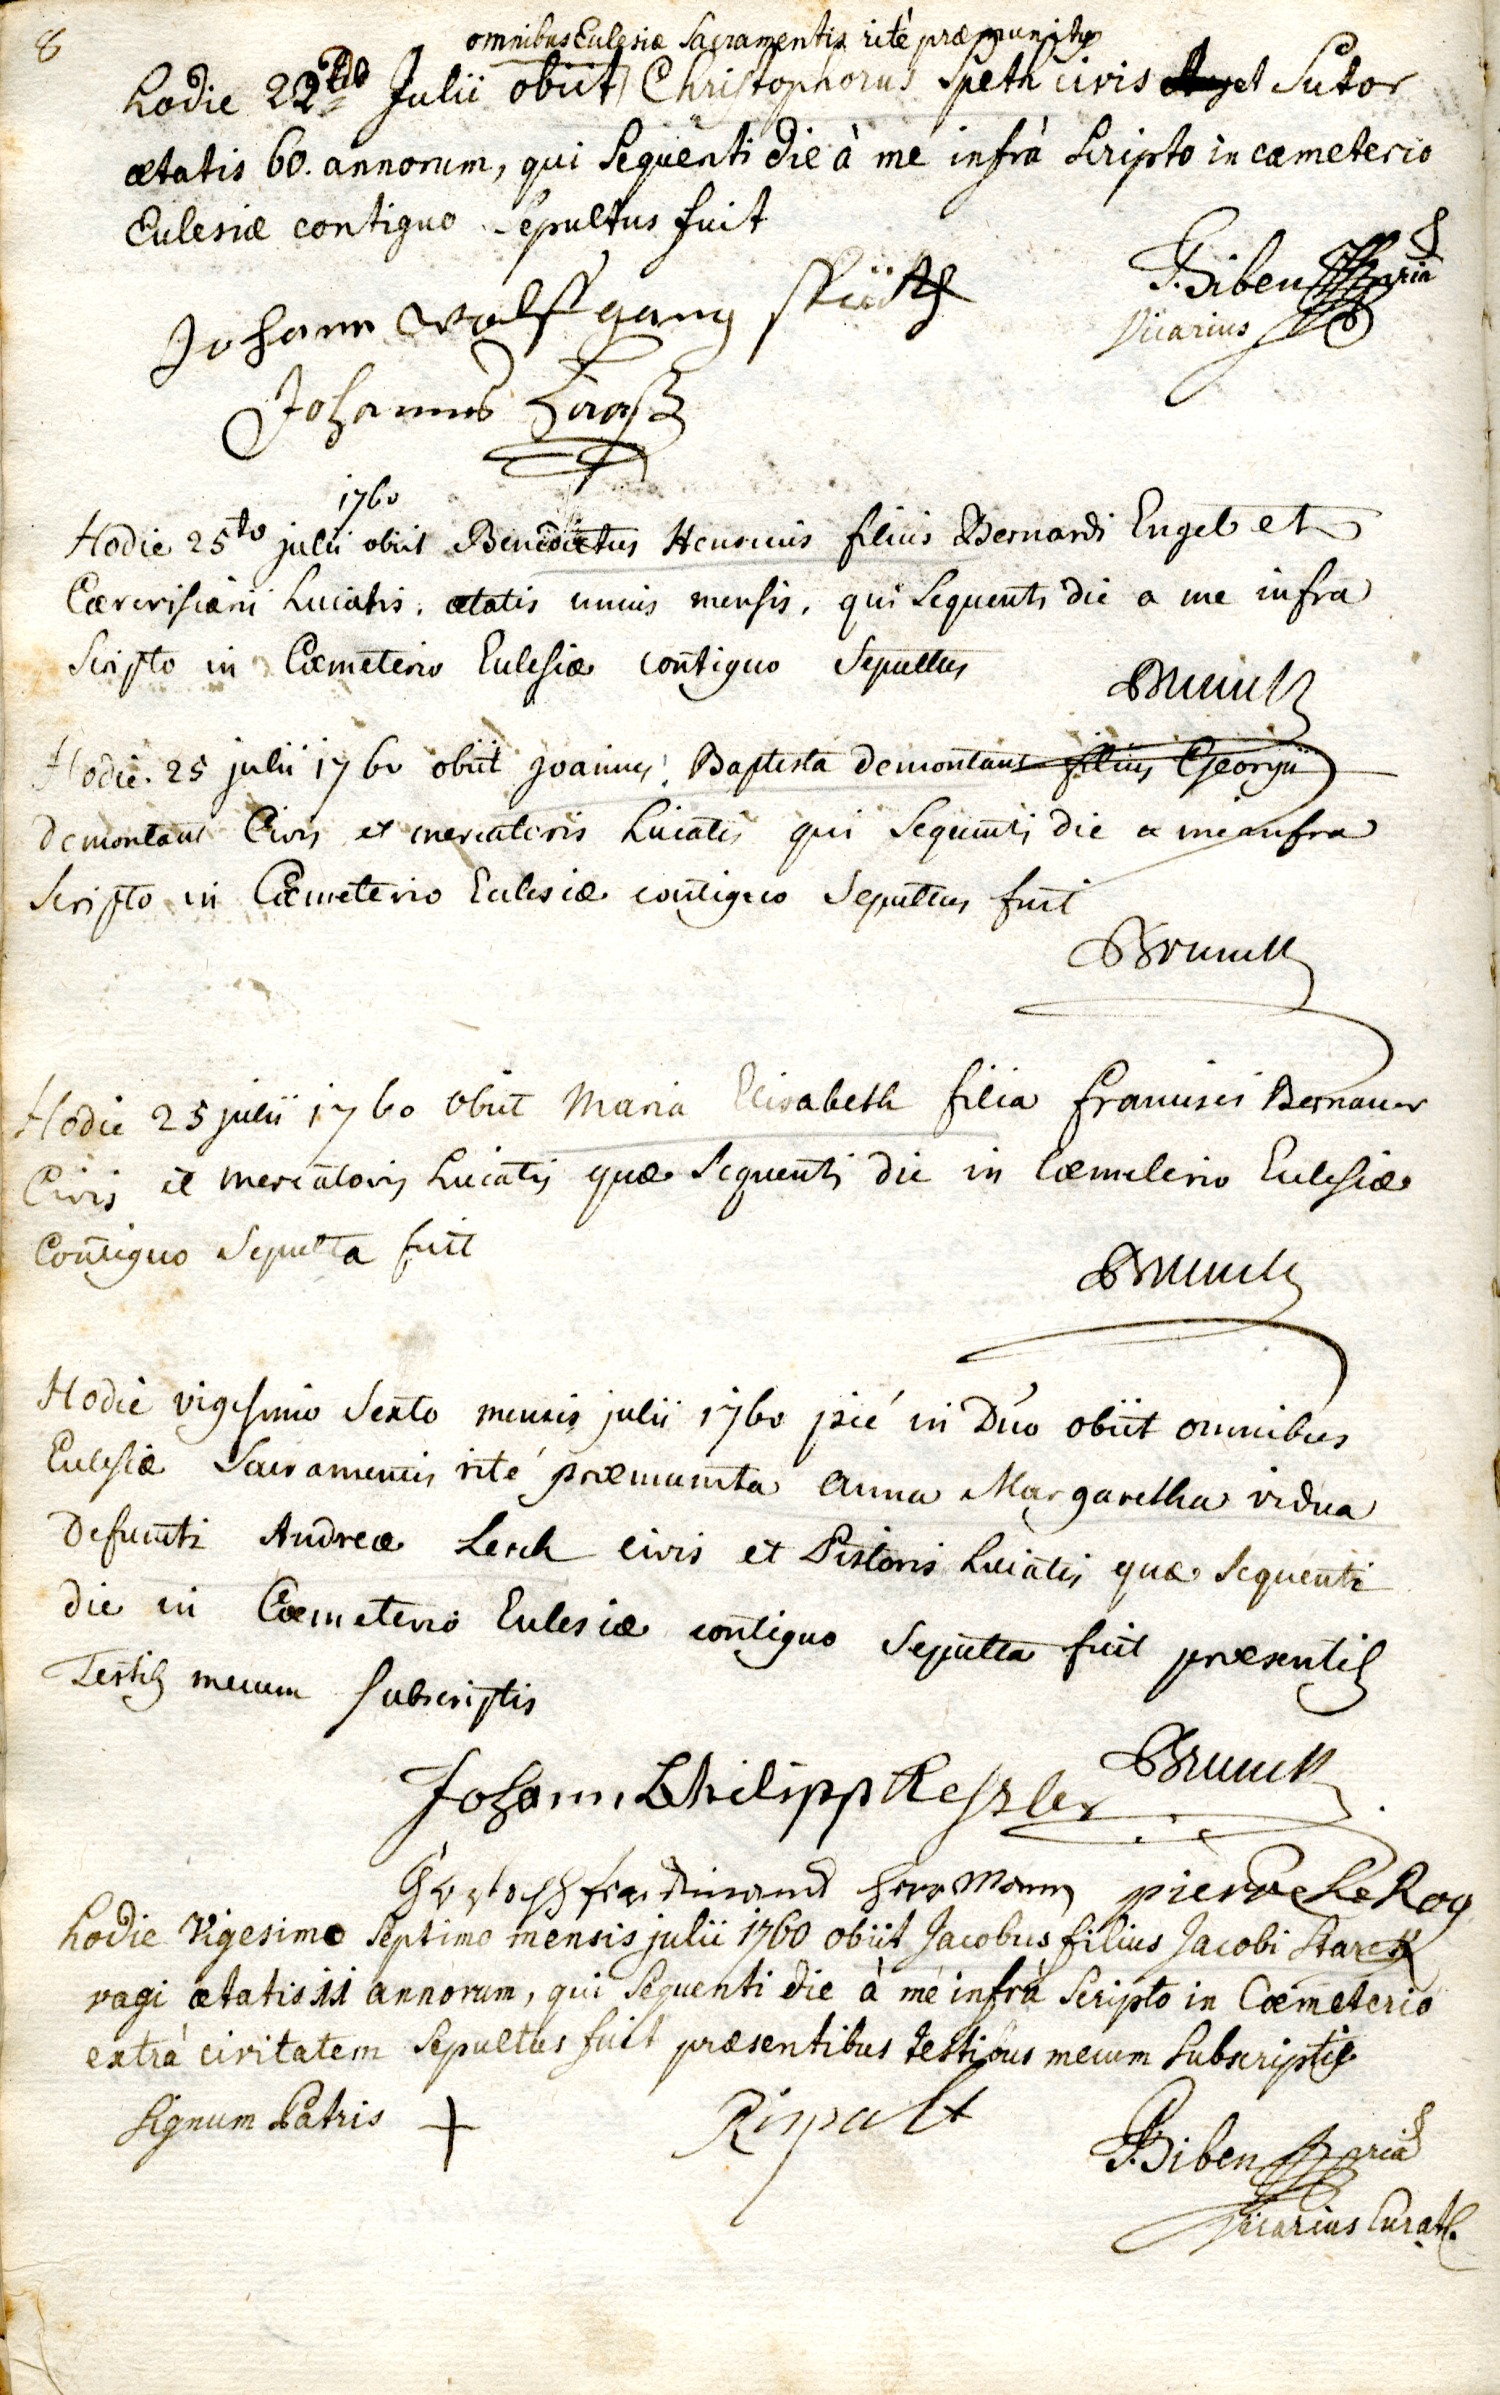 8
omnibus Eclesiæ Sacramentis ritè præmunitus
hodie 22do Julii obiit Christophorus Speth civis et Sutor
ætatis 60. annorum, qui Sequenti die à me infrà Scripto in cæmeterio
Eclesiæ contiguo Sepultus fuit
P. Biben
Johann Wolffgang
vicarius
Johannes
1760
Hodie 25to julii obiit Benedictus Henricus filius Bernardi Engel et
Cærevisiarii huiatis. ætatis unius mensis. qui Sequenti die a me infra
Scripto in Cæmeterio Eclesiæ contiguo Sepultus
Brunck
Hodie. 25 julii 1760 obiit joannes Baptista Demontant filius Georgii
Demontant Civis et mercatoris huiatis qui Sequenti die a me infra
Scripto in Cæmeterio Eclesiæ contiguo Sepultus fuit
Brunck
Hodie 25 julii 1760 obiit Maria Elisabeth filia francisci Bernauer
Civis et mercatoris huiatis quæ Sequenti die in Cæmeterio Eclesiæ
Contiguo Sepulta fuit
Brunck
Hodie vigesimo Sexto mensis julii 1760 pié in Dno obiit omnibus
Eclesiæ Sacramentis rité præmunita anna Margaretha vidua
Defuncti Andreæ Lerch civis et Pistoris huiatis quæ Sequenti
die in Cæmeterio Eclesiæ contiguo Sepulta fuit præsentib
Testib mecum Subscriptis
Brunck
Johann Philipp Kessler
ferdinand herrmann pierre Le Roy
hodie Vigesimo Septimo mensis julii 1760 obiit Jacobus filius Jacobi Starck
vagi ætatis 11 annorum, qui Sequenti die à me infrà Scripto in Cæmeterio
extrà civitatem Sepultus fuit præsentibus testibus mecum Subscriptis
Signum Patris + Rispalt P. Biben
vicarius Curat.